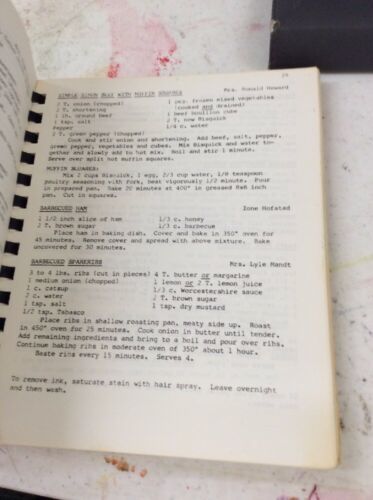 25
SIMPLE SIMON MEAT WITH MUFFIN SQUARES Mrs. Ronald Howard
2 T. onion (chopped) 1 pkg. frozen mixed vegetables
2 T. shortening (cooked and drained)
1 lb. ground beef 1 beef boullion cube
1 tsp. salt 2 T. new Bisquick
Pepper 1/4 c. water
2 T. green pepper (chopped)
Cook and stir onion and shortening. Add beef, salt, pepper,
green pepper, vegetables and cubes. Mix Bisquick and water to-
gether and slowly add to hot mix. Boil and stir 1 minute.
Serve over split hot muffin squares.
MUFFIN SQUARES:
Mix 2 cups Bisquick, 1 egg, 2/3 cup water, 1/8 teaspoon
poultry seasoning with fork, beat vigorously 1/2 minute. Pour
in prepared pan. Bake 20 minutes at 400° in greased 8x8 inch
pan. Cut in squares.
BARBECUED HAM Ione Hofstad
1 1/2 inch slice of ham 1/3 c. honey
2 T. brown sugar 1/3 c. barbecue
Place ham in baking dish. Cover and bake in 350° oven for
45 minutes. Remove cover and spread with above mixture. Bake
uncovered for 30 minutes.
BARBECUED SPARERIBS Mrs. Lyle Mandt
3 to 4 lbs. ribs (cut in pieces) 4 T. butter or margarine
1 medium onion (chopped) 1 lemon or 2 T. lemon juice
1 c. catsup 1/3 c. Worcestershire sauce
2 c. water 2 T. brown sugar
1 tsp. salt 1 tsp. dry mustard
1/2 tsp. Tabasco
Place ribs in shallow roasting pan, meaty side up. Roast
in 450° oven for 25 minutes. Cook onion in butter until tender.
Add remaining ingredients and bring to a boil and pour over ribs.
Continue baking ribs in moderate oven of 350° about 1 hour.
Baste ribs every 15 minutes. Serves 4.
To remove ink, saturate stain with hair spray. Leave overnight
and then wash.